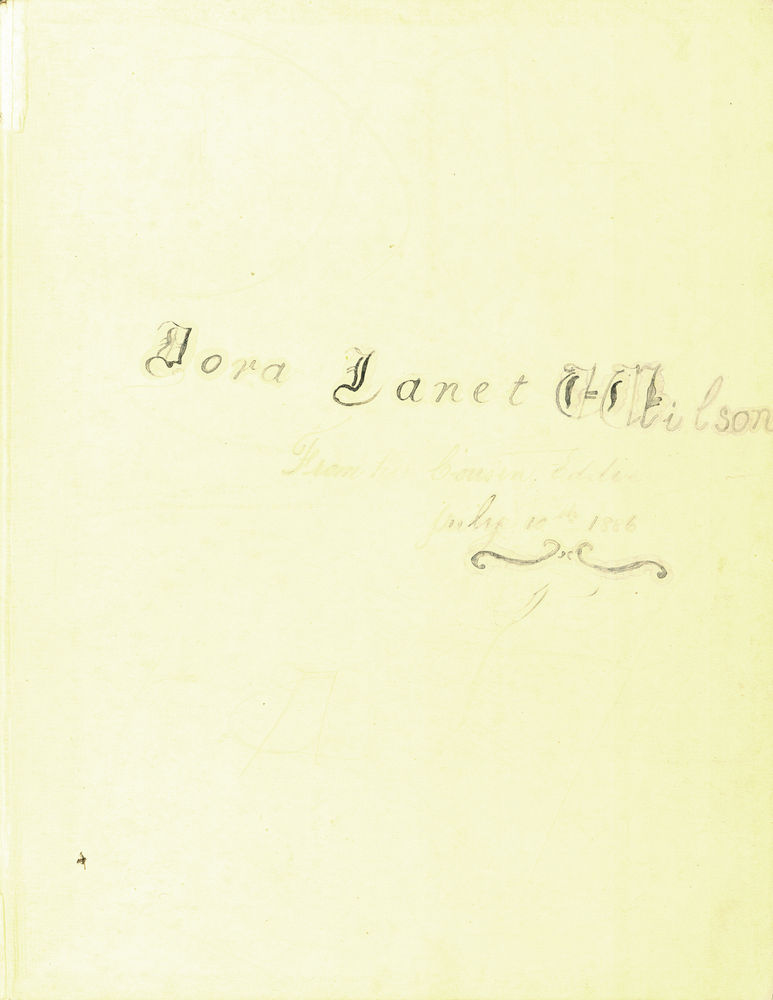 Dora Janet Wilson
From her Cousin Eddie
July 10th 1886